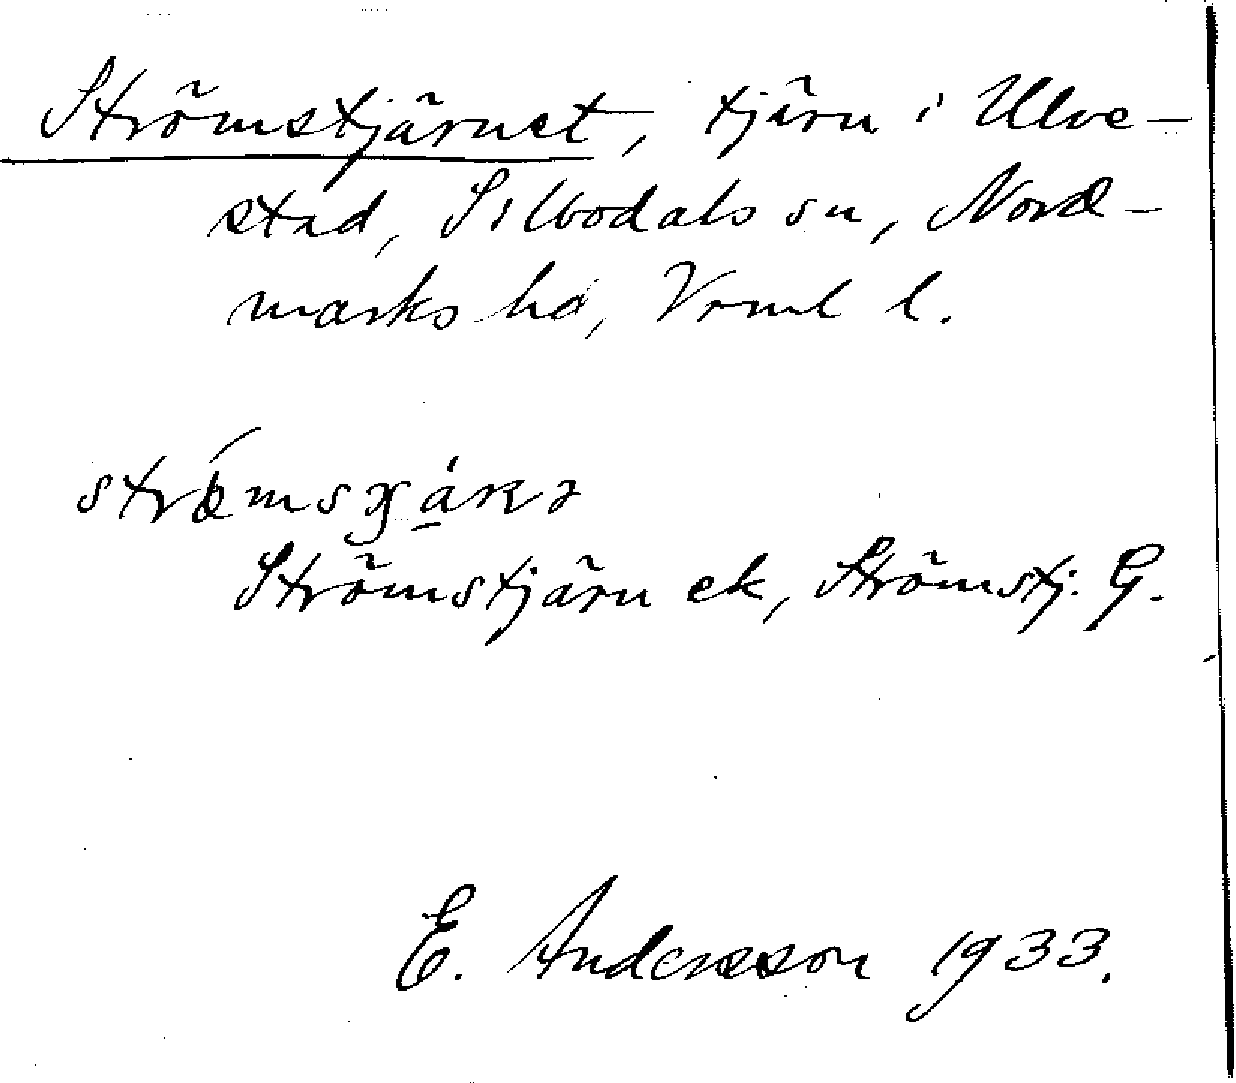 Strömstjärnet, tjärn i Ulve-
stad, Silbodals sn, Nord-
marks hd, Vrml l.
Strömstjärn ek, Strömstj. G.
E. Andersson 1933.